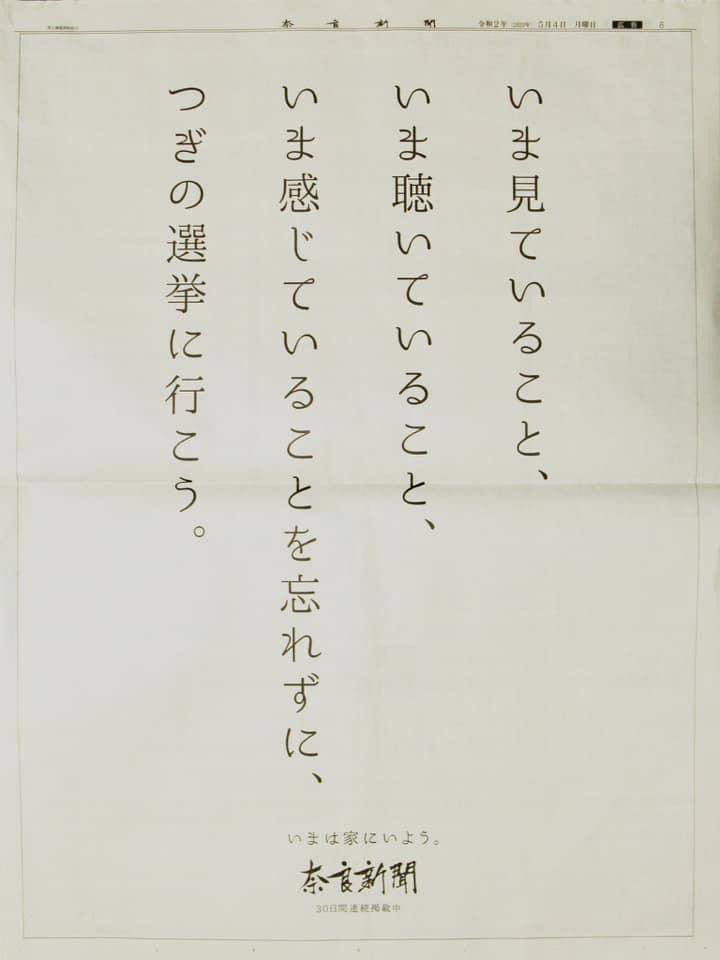 奈良新聞
令和2年(2020年)5月4日 月曜日
6
いま見ていること、
いま聴いていること、
いま感じていることを忘れずに、
つぎの選挙に行こう。
いまは家にいよう。
奈良新聞
30日間連続掲載中